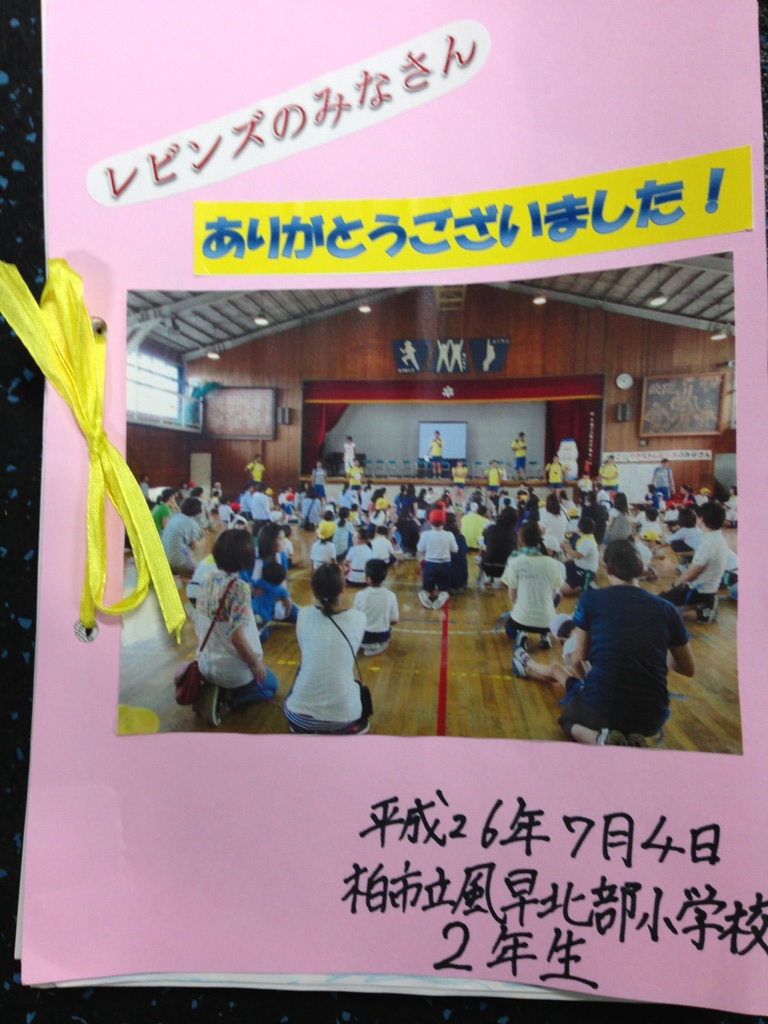 レビンズのみなさん
ありがとうございました！
平成26年7月4日
柏市立風早北部小学校
2年生